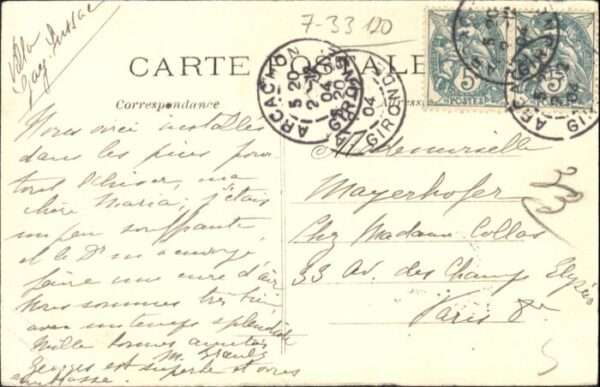 7-33 120
Villa
Gay-Lussac
CARTE POSTALE
Correspondance
ARCACHON
5 20
2
04
GIRONDE
5
POSTES
5
Nous voici installés
dans les pins pour
tout l'hiver, ma
chère Maria; j'étais
un peu souffrante
et le Dr m'a envoyé
faire une cure d'air
Nous sommes très bien
avec un temps splendide
Mille bonnes amitiés
Georges est superbe et vous
embrasse.
Mademoiselle
Mayerhofer
Chez Madame Collas
33 Av. des Champs Elysées
Paris 8e